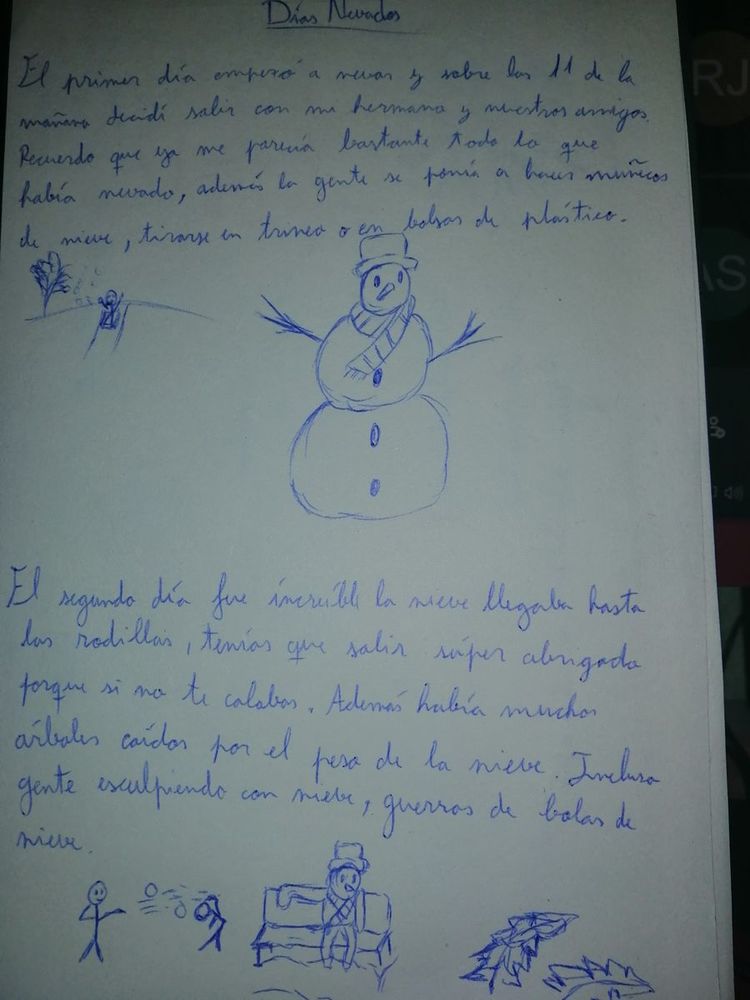 Días Nevados
El primer día empezó a nevar y sobre las 11 de la
mañana decidí salir con mi hermano y nuestros amigos.
Recuerdo que ya me parecía bastante todo lo que
había nevado, además la gente se ponía a hacer muñecos
de nieve, tirarse en trineo o en bolsas de plástico.
El segundo día fue increíble la nieve llegaba hasta
las rodillas, tenías que salir súper abrigado
porque si no te calabas. Además había muchos
árboles caídos por el peso de la nieve. Incluso
gente esculpiendo con nieve, guerras de bolas de
nieve.
RJ
AS